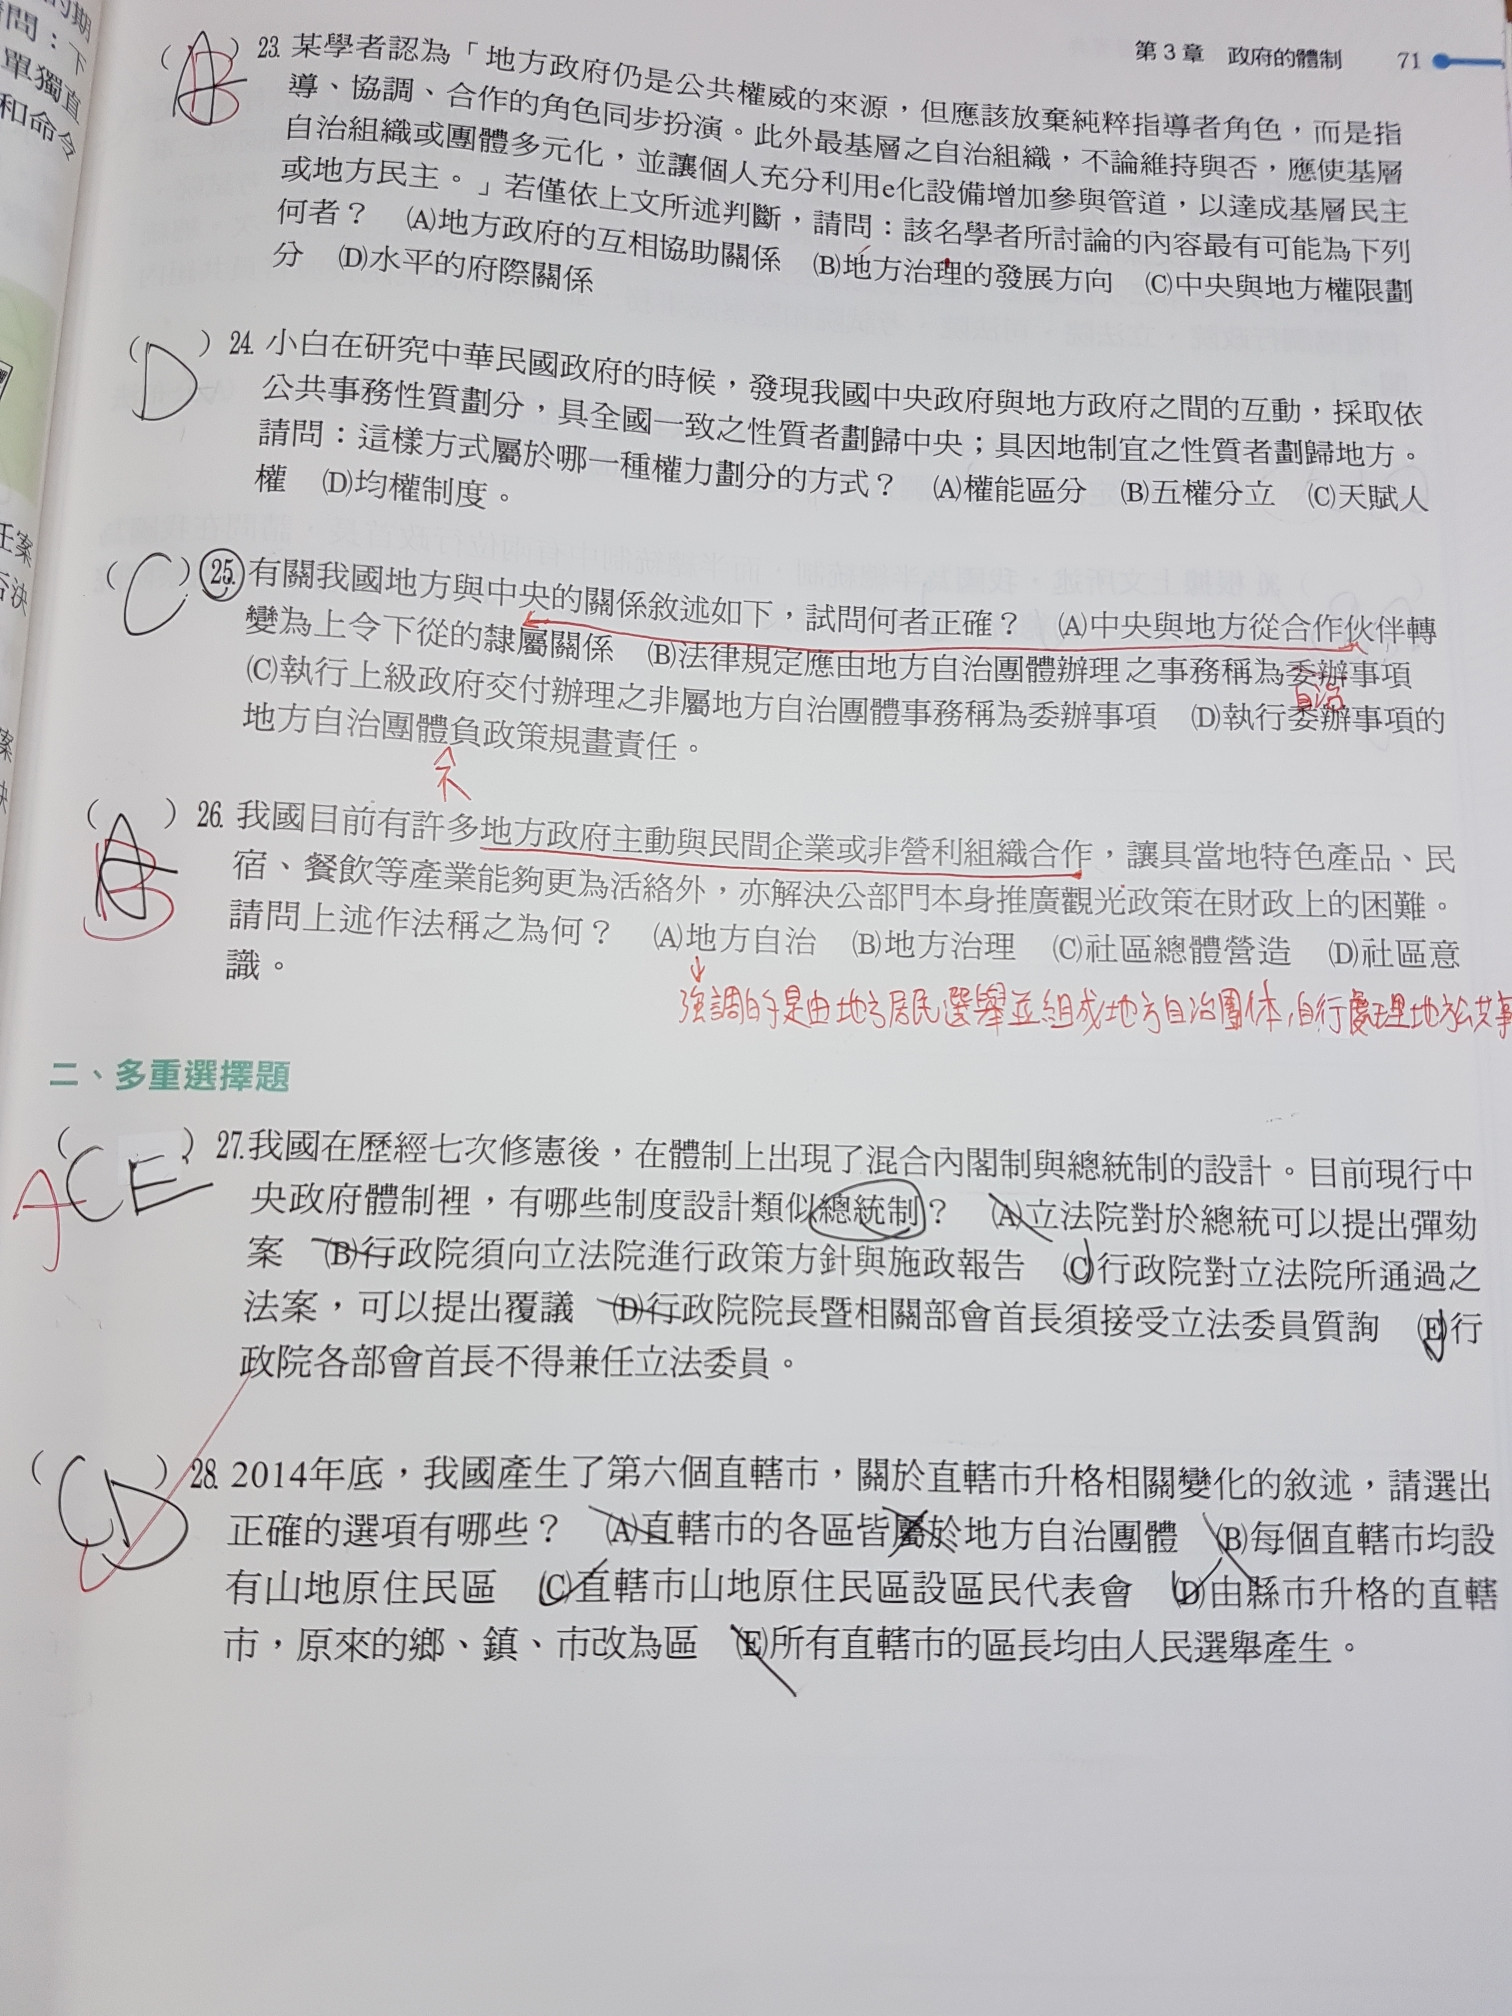 的期
請問：下
單獨直
和命令
第3章　政府的體制　71
(A B) 23. 某學者認為「地方政府仍是公共權威的來源，但應該放棄純粹指導者角色，而是指
導、協調、合作的角色同步扮演。此外最基層之自治組織，不論維持與否，應使基層
自治組織或團體多元化，並讓個人充分利用e化設備增加參與管道，以達成基層民主
或地方民主。」若僅依上文所述判斷，請問：該名學者所討論的內容最有可能為下列
何者？　(A)地方政府的互相協助關係　(B)地方治理的發展方向　(C)中央與地方權限劃
分　(D)水平的府際關係
(D) 24. 小白在研究中華民國政府的時候，發現我國中央政府與地方政府之間的互動，採取依
公共事務性質劃分，具全國一致之性質者劃歸中央；具因地制宜之性質者劃歸地方。
請問：這樣方式屬於哪一種權力劃分的方式？　(A)權能區分　(B)五權分立　(C)天賦人
權　(D)均權制度。
(C) 25. 有關我國地方與中央的關係敘述如下，試問何者正確？　(A)中央與地方從合作伙伴轉
變為上令下從的隸屬關係　(B)法律規定應由地方自治團體辦理之事務稱為委辦事項
自治
(C)執行上級政府交付辦理之非屬地方自治團體事務稱為委辦事項　(D)執行委辦事項的
地方自治團體負政策規畫責任。
不
(A B) 26. 我國目前有許多地方政府主動與民間企業或非營利組織合作，讓具當地特色產品、民
宿、餐飲等產業能夠更為活絡外，亦解決公部門本身推廣觀光政策在財政上的困難。
請問上述作法稱之為何？　(A)地方自治　(B)地方治理　(C)社區總體營造　(D)社區意
識。
強調的是由地方居民選舉並組成地方自治團体，自行處理地方公共事
二、多重選擇題
(A CE) 27. 我國在歷經七次修憲後，在體制上出現了混合內閣制與總統制的設計。目前現行中
央政府體制裡，有哪些制度設計類似總統制？　(A)立法院對於總統可以提出彈劾
案　(B)行政院須向立法院進行政策方針與施政報告　(C)行政院對立法院所通過之
法案，可以提出覆議　(D)行政院院長暨相關部會首長須接受立法委員質詢　(E)行
政院各部會首長不得兼任立法委員。
(CD) 28. 2014年底，我國產生了第六個直轄市，關於直轄市升格相關變化的敘述，請選出
正確的選項有哪些？　(A)直轄市的各區皆屬於地方自治團體　(B)每個直轄市均設
有山地原住民區　(C)直轄市山地原住民區設區民代表會　(D)由縣市升格的直轄
市，原來的鄉、鎮、市改為區　(E)所有直轄市的區長均由人民選舉產生。